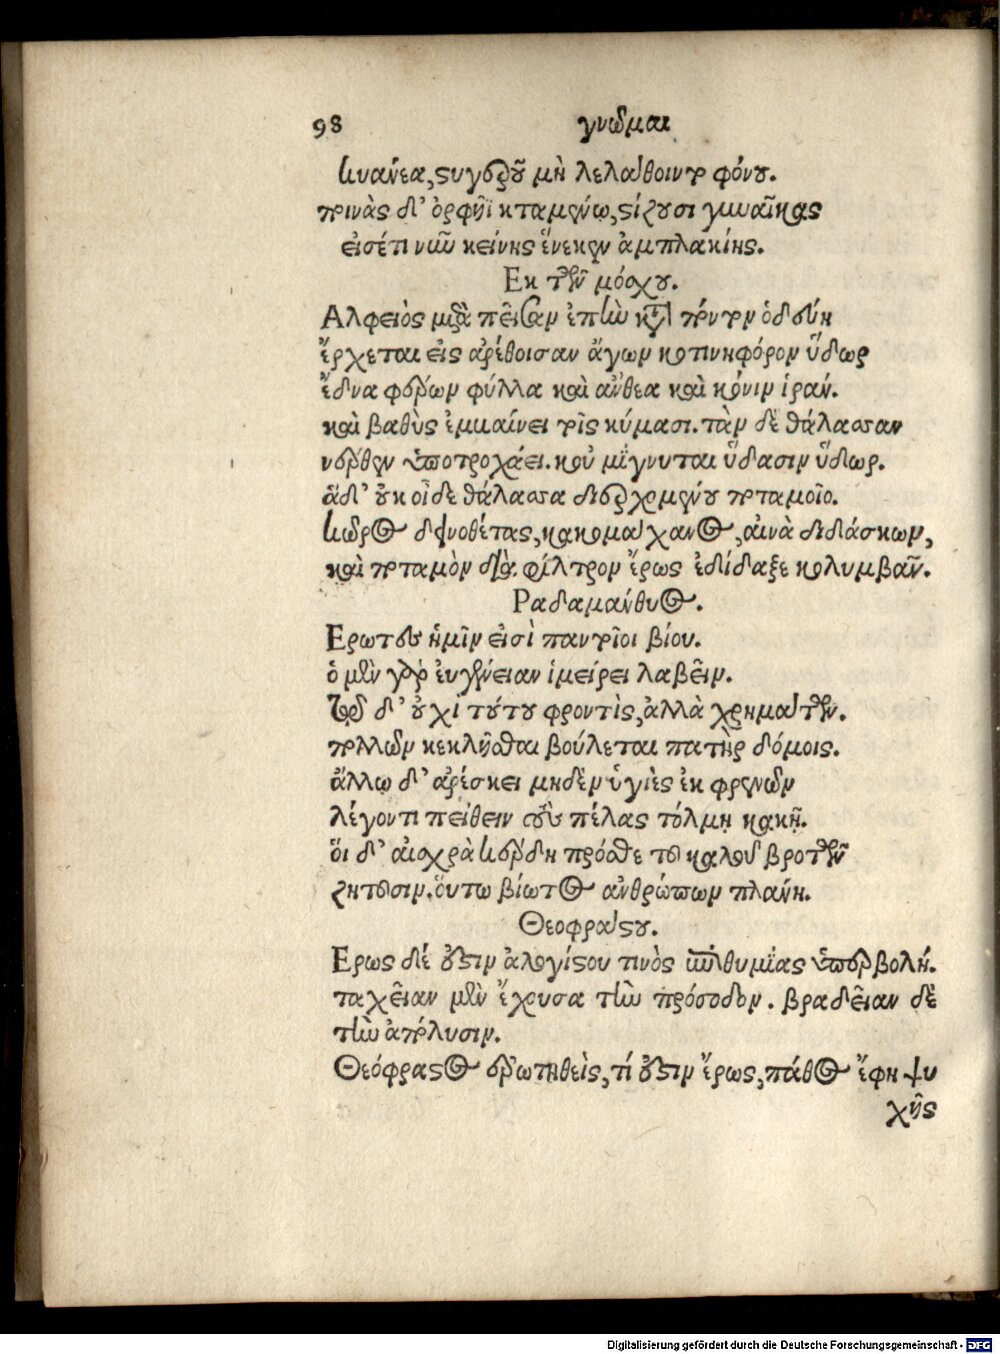 98 γνῶμαι
κυανέα, στυγεροῦ μὴ λελάθοιντο φόνου.
ποινὰς δ' ὀρφῆϊ κταμένῳ, στίζουσι γυναῖκας
εἰσέτι νῦν κείνης ἕνεκεν ἀμπλακίης.
Εκ τῶν μόσχου.
Αλφειὸς μετὰ πεῖσαν ἐπὴν κατὰ πόντον ὁδεύῃ
ἔρχεται εἰς ἀρέθοισαν ἄγων κοτινηφόρον ὕδωρ
ἔδνα φέρων φύλλα καὶ ἄνθεα καὶ κόνιν ἱράν.
καὶ βαθὺς ἐμβαίνει τοῖς κύμασι. τὰν δὲ θάλασσαν
νέρθεν ὑποτροχάει. κοὐ μίγνυται ὕδασιν ὕδωρ.
ἁδ' οὐκ οἶδε θάλασσα διερχομένου ποταμοῖο.
κῶρος δεινοθέτας, κακομάχανος, αἰνὰ διδάσκων,
καὶ ποταμὸν διὰ φίλτρον ἔρως ἐδίδαξε κολυμβᾶν.
Ραδαμάνθυος.
Ερωτες ἡμῖν εἰσὶ παντοῖοι βίου.
ὁ μὲν γὰρ εὐγένειαν ἱμείρει λαβεῖν.
τῷ δ' οὐχὶ τούτου φροντὶς, ἀλλὰ χρημάτων.
πολλῶν κεκλῆσθαι βούλεται πατὴρ δόμοις.
ἄλλῳ δ' ἀρέσκει μηδὲν ὑγιὲς ἐκ φρενῶν
λέγοντι πείθειν τοὺς πέλας τόλμῃ κακῇ.
ὅι δ' αἰσχρὰ κέρδη πρόσθε τοῦ καλοῦ βροτῶν
ζητοῦσιν. ὅυτω βίωτος ἀνθρώπων πλάνη.
Θεοφράστου.
Ερως δέ ἐστιν ἀλογίστου τινὸς ἐπιθυμίας ὑπερβολή.
ταχεῖαν μὲν ἔχουσα τὴν πρόσοδον. βραδεῖαν δὲ
τὴν ἀπόλυσιν.
Θεόφραστος ἐρωτηθεὶς, τί ἐστιν ἔρως, πάθος ἔφη ψυ
χῆς
Digitalisierung gefördert durch die Deutsche Forschungsgemeinschaft - DFG